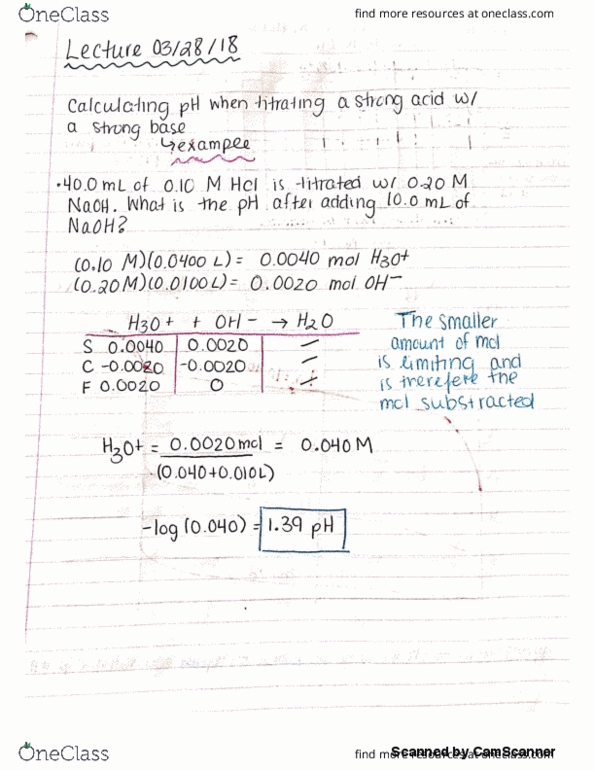 OneClass
find more resources at oneclass.com
Lecture 03/28/18
Calculating pH when titrating a strong acid w/
a strong base
↳example
•40.0 mL of 0.10 M HCl is titrated w/ 0.20 M
NaOH. What is the pH after adding 10.0 mL of
NaOH?
(0.10 M)(0.0400 L) = 0.0040 mol H3O+
(0.20M)(0.0100L) = 0.0020 mol OH−
H3O+ + OH− → H2O
S 0.0040 0.0020 —
C -0.0020 -0.0020 —
F 0.0020 0 +
The smaller
amount of mol
is limiting and
is therefore the
mol substracted
H3O+ = 0.0020 mol = 0.040 M
(0.040+0.010L)
-log(0.040) = 1.39 pH
OneClass
find more resources at oneclass.com
Scanned by CamScanner